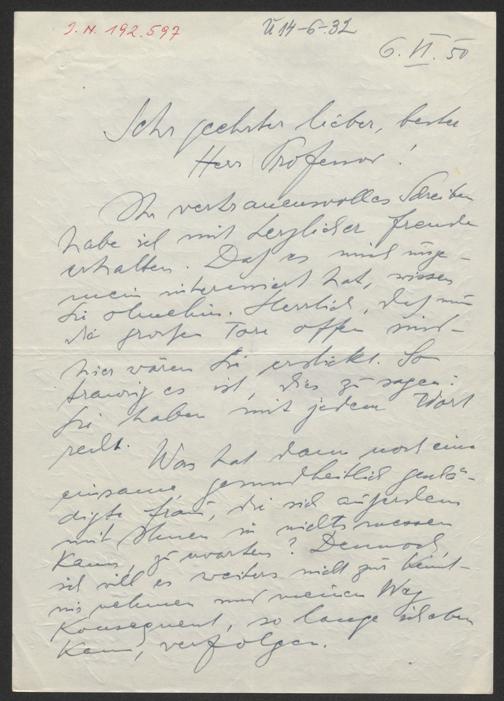 J. N. 192.597
Ü 14-6-32
6. VI. 50
Sehr geehrter lieber, bester
Herr Professor!
Ihr vertrauensvolles Schreiben
habe ich mit herzlicher Freude
erhalten. Daß es mich unge-
mein interessiert hat, wissen
Sie ohnehin. Herrlich, daß nun
die großen Tore offen sind -
hier wären Sie erstickt. So
traurig es ist, dies zu sagen:
Sie haben mit jedem Wort
recht.
Was hat denn noch eine
einsame gesundheitlich geschä-
digte Frau, die sich außerdem
mit Ihnen in nichts messen
kann, zu warten? Dennoch,
ich will es weiters nicht zur Kennt-
nis nehmen und meinen Weg
konsequent, so lange ich eben
kann, verfolgen.